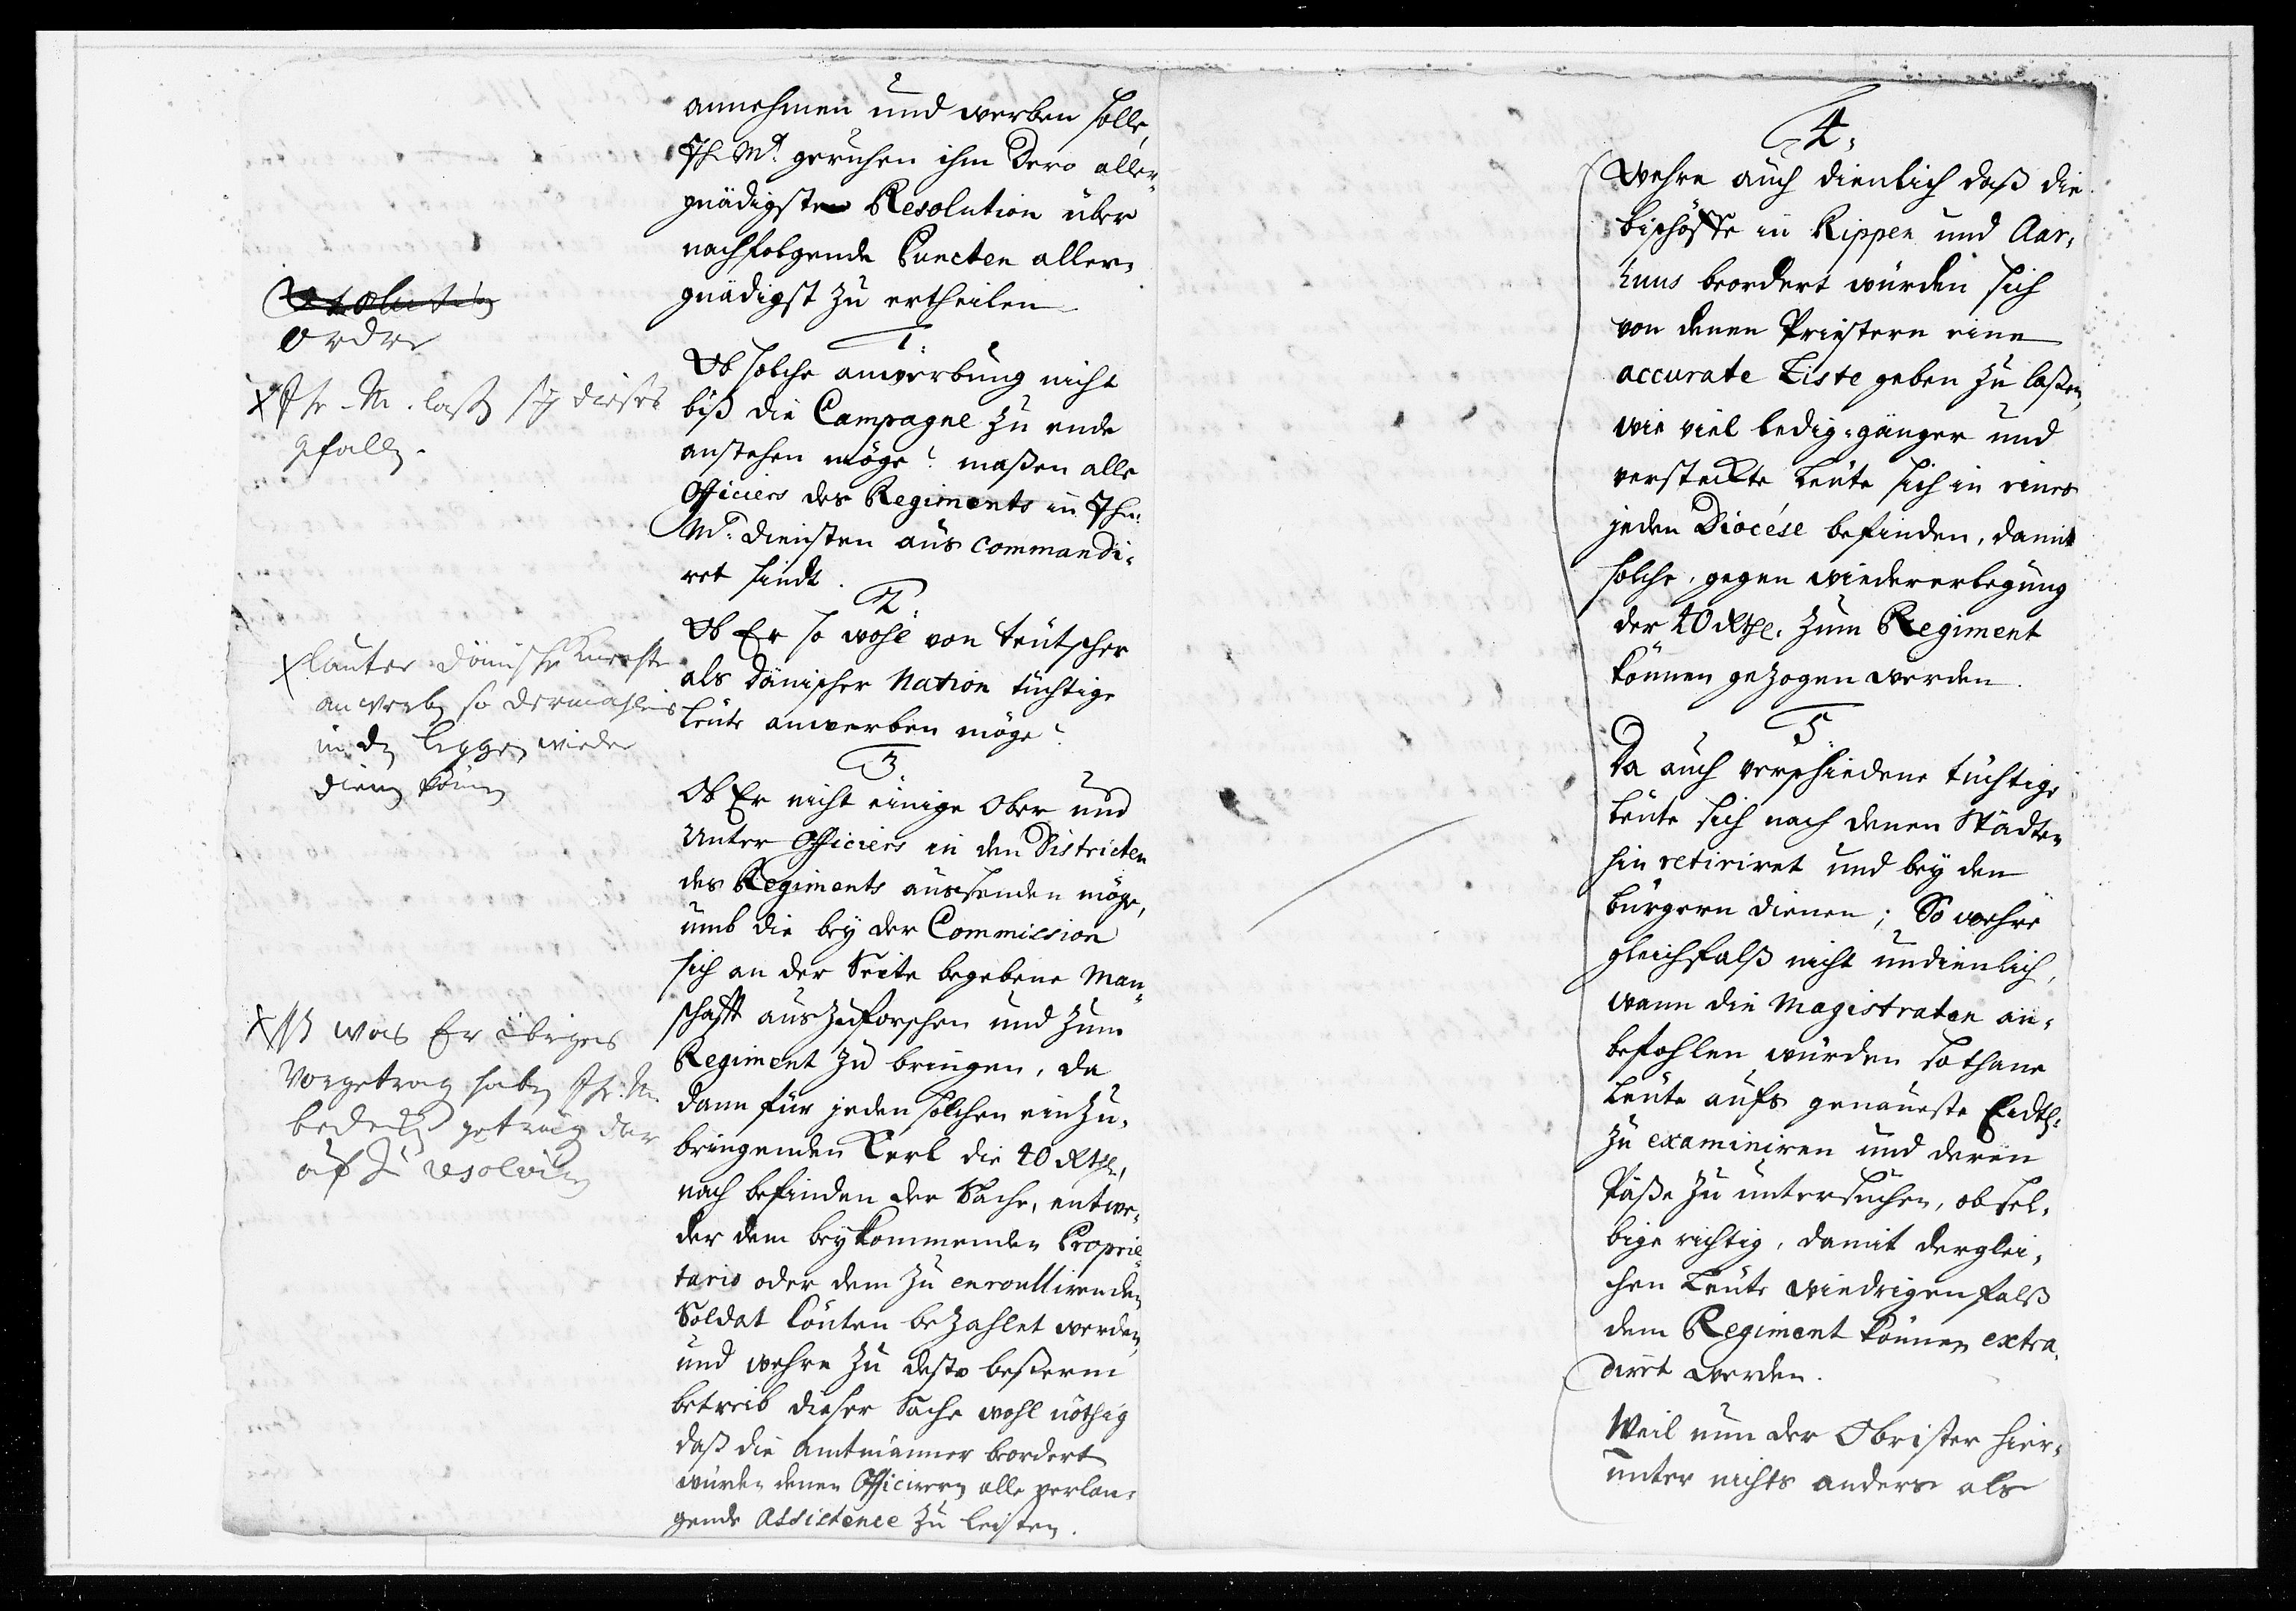 annehmen und werben solle,
Ih. Mt. geruhen ihm Dero aller-
gnädigste Resolution über
nachfolgende Puncten aller-
gnädigst zu ertheilen
1.
Ob solche anwerbung nicht
biß die Campagne zu ende
anstehen möge? maßen alle
Officiers des Regiments in Ihr.
Mt. diensten aus commandi-
ret sindt.
2.
Ob Er so wohl von teütscher
als dänischer Nation tüchtige
leüte anwerben möge?
3.
Ob Er nicht einige Ober und
Unter Officiers in den Districten
des Regiments aussenden möge,
umb die bey der Commission
sich an der Seite begebene Man-
schafft auszuforschen und zum
Regiment zu bringen, da
dann für jeden solchen einzu-
bringenden Kerl die 40 Rthl.,
nach befinden der Sache, entwe-
der dem beykommenden Proprie-
tario oder dem zu enroullirenden
Soldat könten bezahlet werden,
und wehre zu desto beßerm
betrieb dieser Sache wohl nöthig
daß die Amtmänner beordert
würden denen Officirern alle verlan-
gende Assistence zu leisten.
Resolution
Ordre
x Ihr. M. laßen sich dieses
gefallen.
x lauter dänische Knechte
anwerben so dermahleins
in den leggen wieder
dienen können
x Was Er übriges
Vorgetragen haben Ihr. M.
bedencken getragen dar
auf zu resolviren
4.
Wehre auch dienlich daß die
Bischöffe in Rippen und Aar-
huus beordert würden sich
von denen Priestern eine
accurate Liste geben zu laßen,
wie viel ledig-gänger und
versteckte Leüte sich in eines
jeden Diocése befinden, damit
solche, gegen wiedererlegung
der 40 Rthl. zum Regiment
können gezogen werden.
5.
Da auch verschiedene tüchtige
Leüte sich nach denen Städten
hin retiriret und bey den
Bürgern dienen; So wehre
gleichfalß nicht undienlich,
wann die Magistraten an-
befohlen würden sothane
Leüte aufs genaueste Eidtl.
zu examiniren und deren
Päße zu untersuchen, ob sel-
bige richtig, damit derglei-
chen Leüte wiedrigenfalß
dem Regiment können extra-
dirt werden.
Weil nun der Obrister hier-
unter nichts anders als